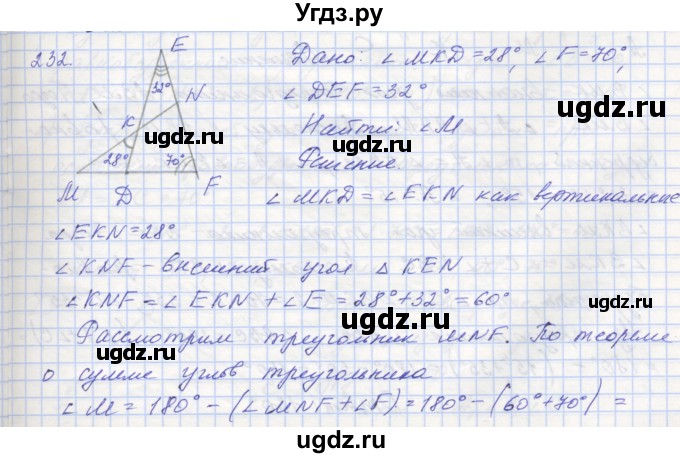 Угдз.ру
232.
E
32°
N
K
28°
70°
M D F
Дано: ∠ MKD = 28°, ∠ F = 70°,
∠ DEF = 32°
Найти: ∠ M
Решение.
∠ MKD = ∠ EKN как вертикальные
∠ EKN = 28°
∠ KNF – внешний угол △ KEN
∠ KNF = ∠ EKN + ∠ E = 28° + 32° = 60°
Рассмотрим треугольник MNF. По теореме
о сумме углов треугольника
∠ M = 180° – (∠ MNF + ∠ F) = 180° – (60° + 70°) =
ugdz.ru
ugdz.ru
ugdz.ru
ugdz.ru
ugdz.ru
ugdz.ru
ugdz.ru
ugdz.ru
ugdz.ru